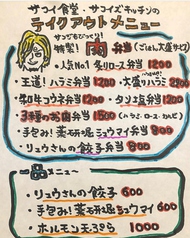 サコイ食堂・サコイズキッチンの
テイクアウトメニュー
サコイでもじっくり!
特製! 肉弁当 (ごはん大盛サービス)
・人気No1 多リロース弁当 1200
・王道!ハラミ弁当 1200
・大盛りハラミ 2500
・和牛ウニ弁当 1200
・タン塩弁当 1200
・3種のお肉弁当 1500 (ハラミ・ロース・カルビ)
・手包み!薬研堀シュウマイ弁当 800
・リュウさんの餃子弁当 800
一品メニュー
・リュウさんの餃子 600
・手包み!薬研堀シュウマイ 600
・ホルモン天ぷら 1000